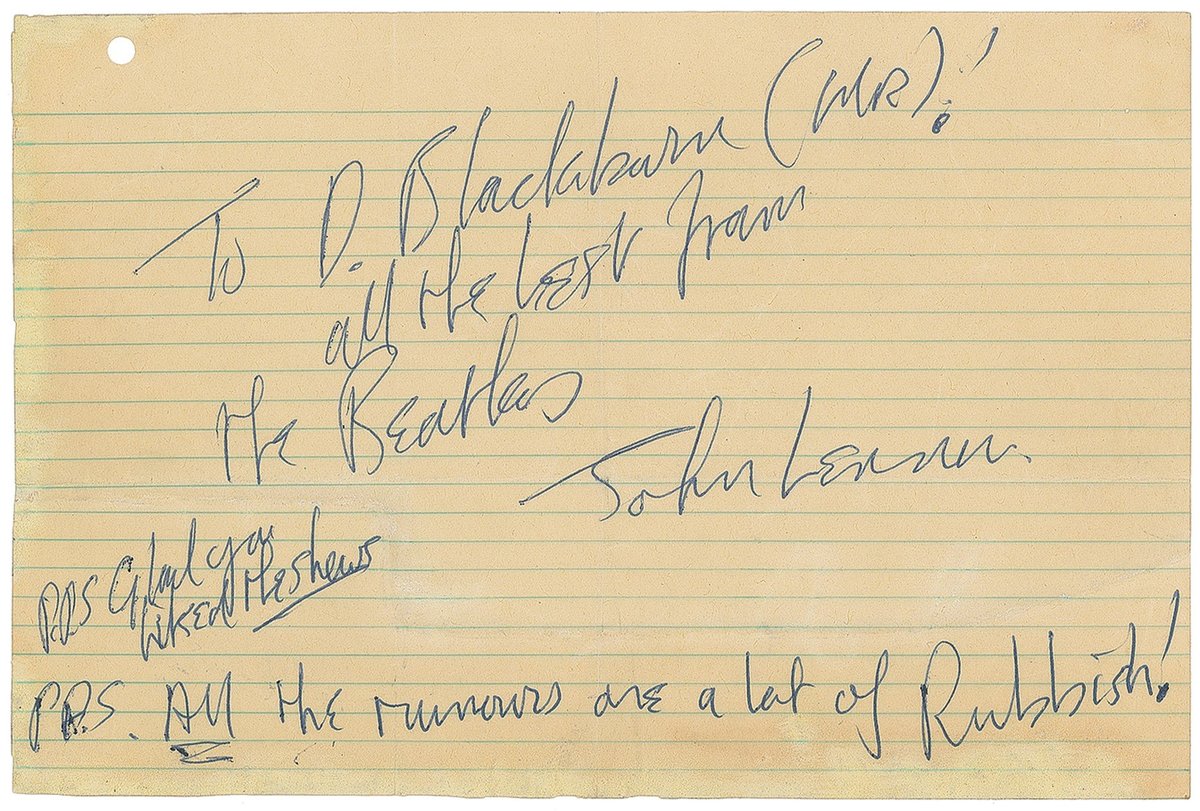 To D. Blackburn (MR)!
all the best from
the Beatles
John Lennon.
P.P.S Glad you
liked the shews
P.P.S. All the rumours are a lot of Rubbish!